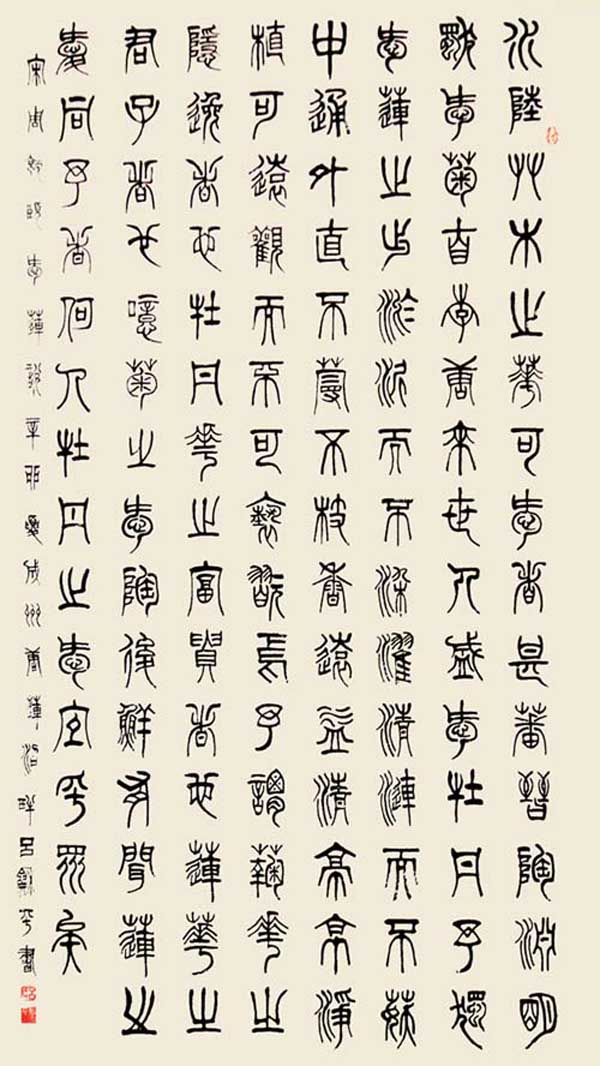 水陸艸木之華可愛者甚蕃晉陶淵明
獨愛菊自李唐來世人盛愛牡丹予獨
愛蓮之出淤泥而不染濯清漣而不妖
中通外直不蔓不枝香遠益清亭亭淨
植可遠觀而不可褻翫焉予謂蘜華之
隱逸者也牡丹華之富貴者也蓮華之
君子者也噫菊之愛陶後鮮有聞蓮之
愛同予者何人牡丹之愛宜乎眾矣
宋周敦頤愛蓮說辛卯夏成州唐蓮沼畔呂平書